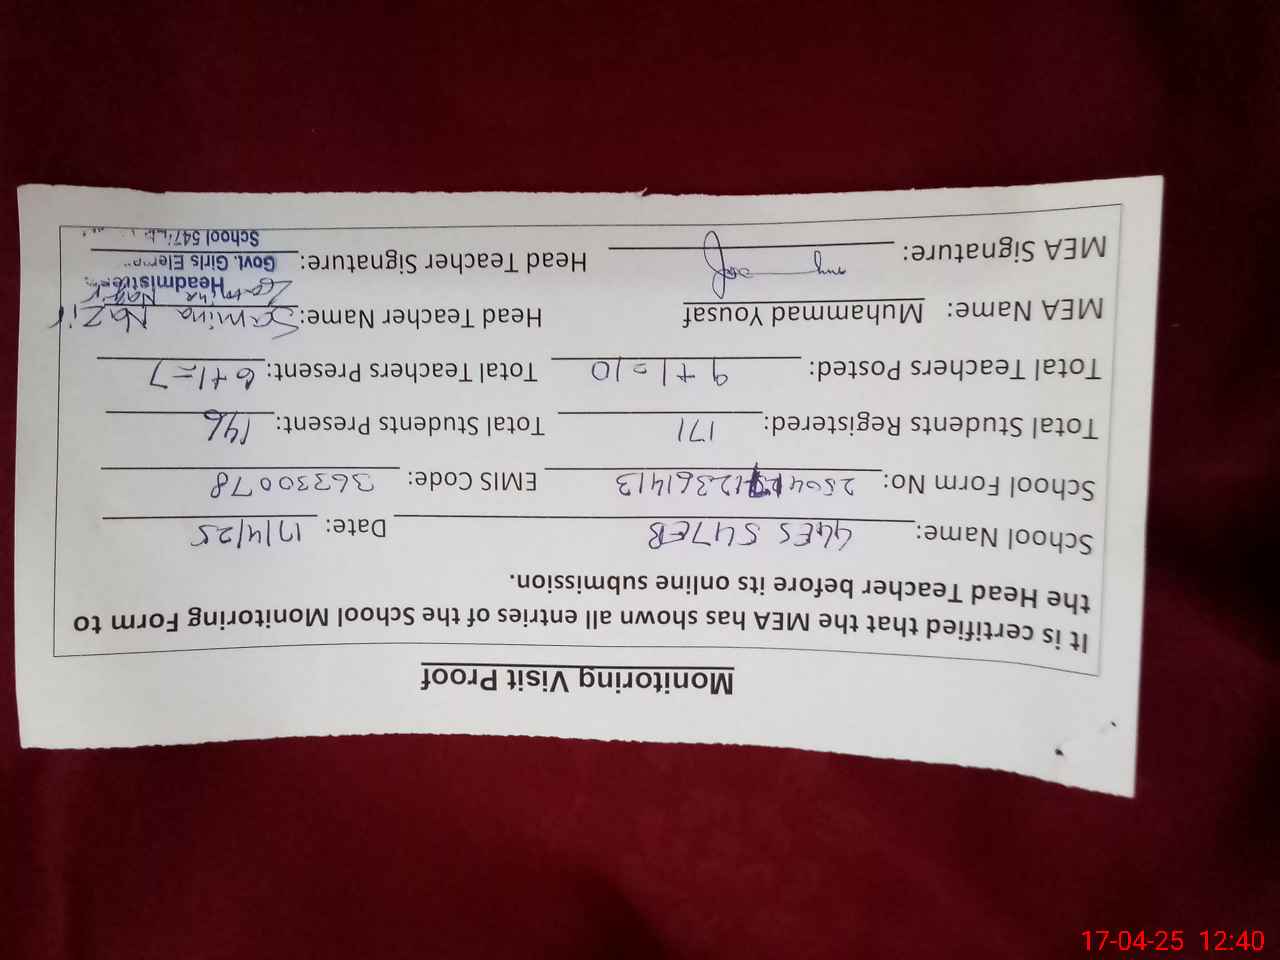 Monitoring Visit Proof
It is certified that the MEA has shown all entries of the School Monitoring Form to
the Head Teacher before its online submission.
School Name: GGES 547EB Date: 17/4/25
School Form No: EMIS Code: 36330078
Total Students Registered: 171 Total Students Present: 146
Total Teachers Posted: 9+1=10 Total Teachers Present: 6+1=7
MEA Name: Muhammad Yousaf Head Teacher Name: Samina Nazir
MEA Signature: Head Teacher Signature: Samina Nazir
Headmistress
Govt. Girls
School 547
17-04-25 12:40